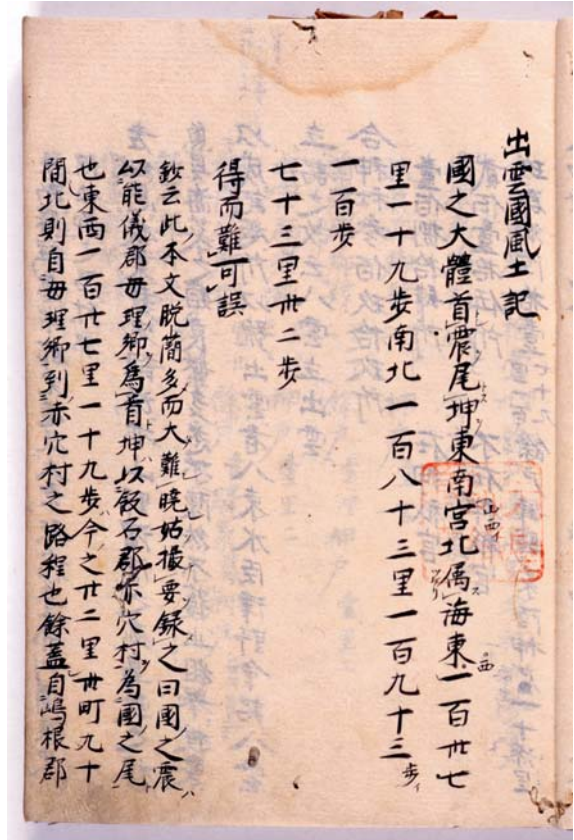 出雲國風土記
國之大體首震尾坤東南宮北属海東一百卅七
里一十九歩南北一百八十三里一百九十三
一百歩
七十三里卅二歩
得而難可誤
鈔云此本文脱蕳多而大難暁姑撮要録之曰國之震
以能儀郡毋理郷為首坤以飯石郡赤穴村為國之尾
也東西一百卅七里一十九歩今之廿二里卅町九十
間北則自毋理郷到赤穴村之路程也餘蓋自嶋根郡